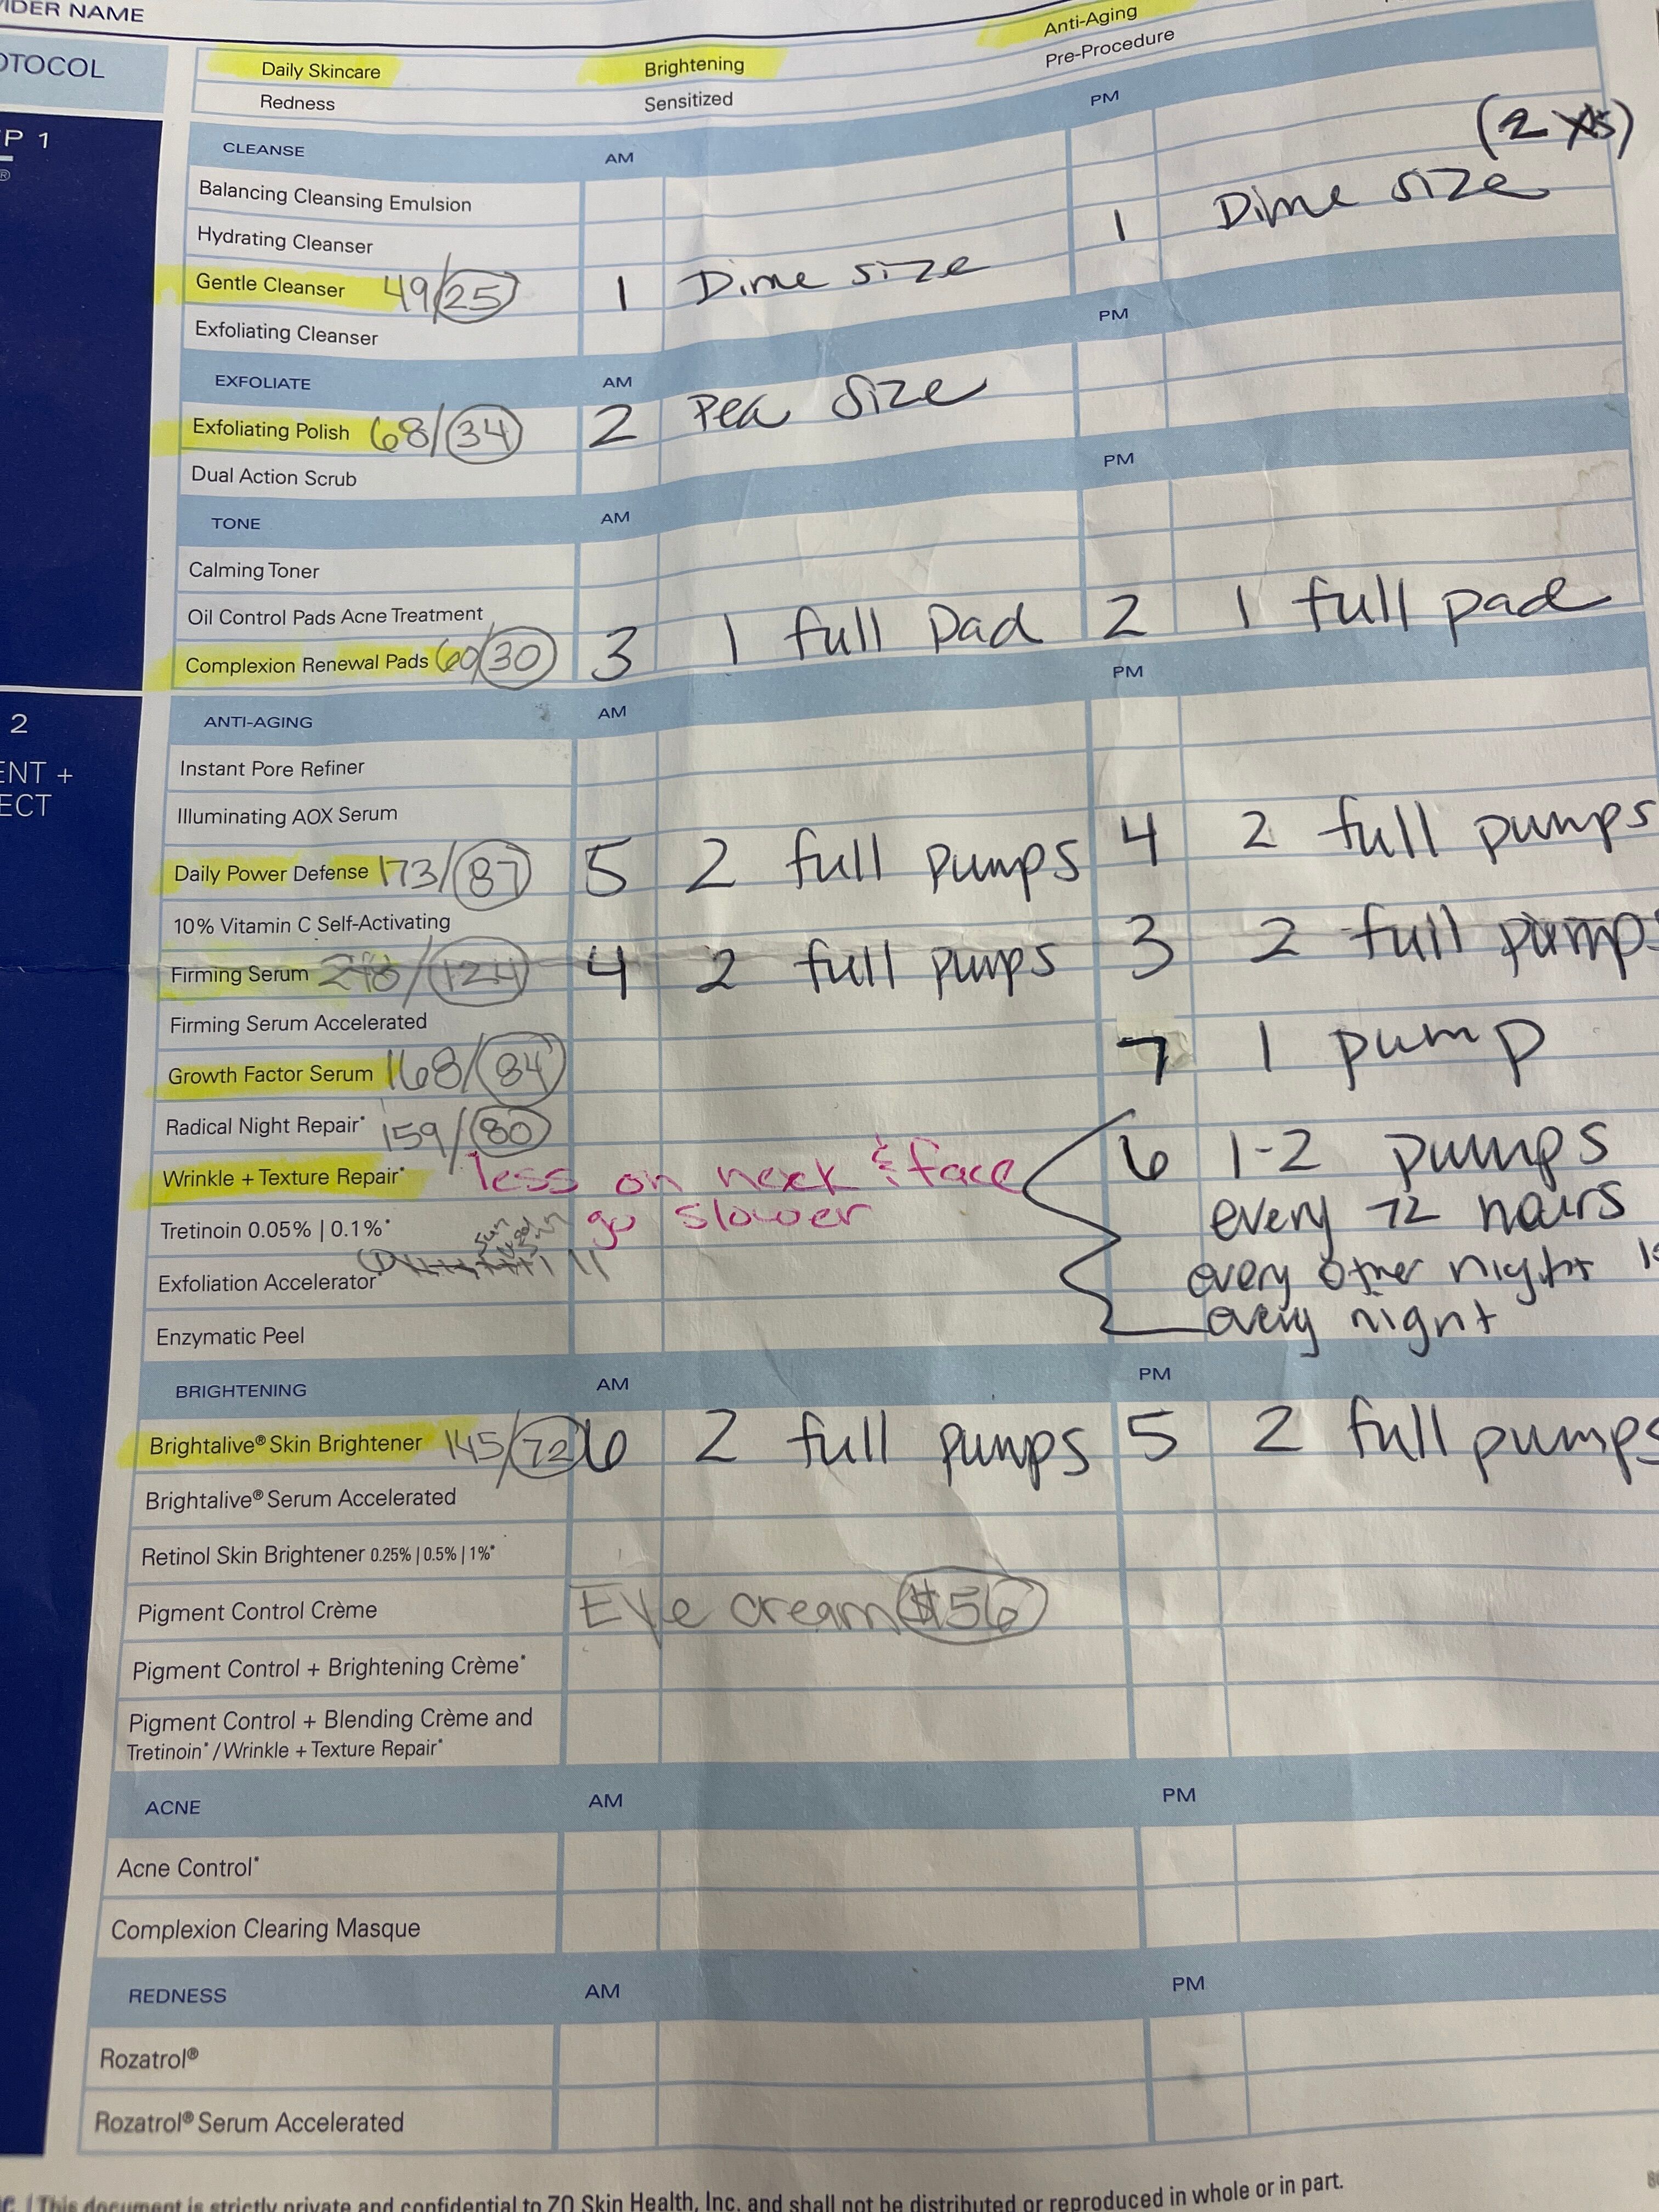 IDER NAME
OTOCOL
Daily Skincare Brightening Anti-Aging
Redness Sensitized Pre-Procedure
P 1
®
CLEANSE AM PM
Balancing Cleansing Emulsion (2 x's)
Hydrating Cleanser
Gentle Cleanser 49/25 1 Dime size 1 Dime size
Exfoliating Cleanser
EXFOLIATE AM PM
Exfoliating Polish 68/34 2 Pea Size
Dual Action Scrub
TONE AM PM
Calming Toner
Oil Control Pads Acne Treatment
Complexion Renewal Pads 60/30 3 1 full Pad 2 1 full pad
2
ENT +
ECT
ANTI-AGING AM PM
Instant Pore Refiner
Illuminating AOX Serum
Daily Power Defense 173/87 5 2 full pumps 4 2 full pumps
10% Vitamin C Self-Activating
Firming Serum 248/124 4 2 full pumps 3 2 full pumps
Firming Serum Accelerated
Growth Factor Serum 168/84 7 1 pump
Radical Night Repair* 159/80
Wrinkle + Texture Repair* less on neck & face 6 1-2 pumps
Tretinoin 0.05% | 0.1%* go slower every 72 hours
Exfoliation Accelerator* every other night
Enzymatic Peel every night
BRIGHTENING AM PM
Brightalive® Skin Brightener 145/72 6 2 full pumps 5 2 full pumps
Brightalive® Serum Accelerated
Retinol Skin Brightener 0.25% | 0.5% | 1%*
Pigment Control Crème Eye cream $56
Pigment Control + Brightening Crème*
Pigment Control + Blending Crème and
Tretinoin* / Wrinkle + Texture Repair*
ACNE AM PM
Acne Control*
Complexion Clearing Masque
REDNESS AM PM
Rozatrol®
Rozatrol® Serum Accelerated
C. | This document is strictly private and confidential to ZO Skin Health, Inc. and shall not be distributed or reproduced in whole or in part.